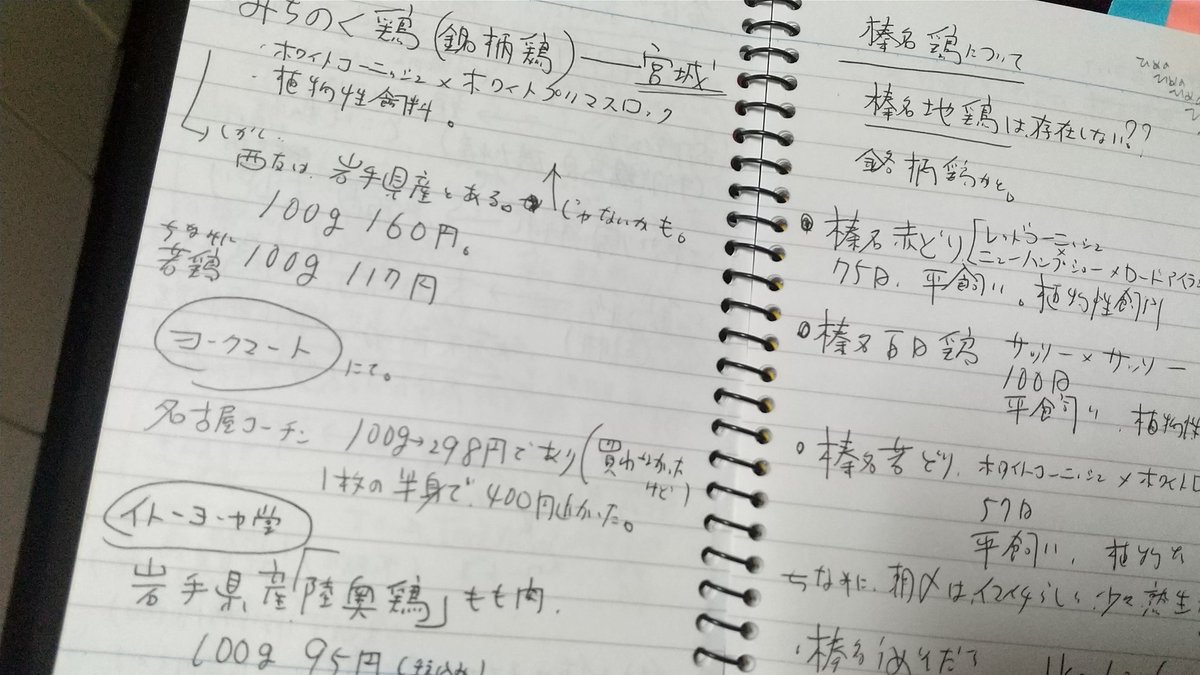 みちのく鶏(銘柄鶏)——宮城
・ホワイトコーニッシュ×ホワイトプリマスロック
・植物性飼料。
しかし
西友は、岩手県産とある。 ↑じゃないかも。
100g 160円。
ちなみに
若鶏 100g 117円
ヨークマート にて。
名古屋コーチン 100g→298円であり(買わなかった
けど)
1枚の半身で、400円近かった。
イトーヨーカ堂
岩手県産「陸奥鶏」もも肉.
100g 95円
榛名鶏について
榛名地鶏は、存在しない??
銘柄鶏かと。
榛名赤どり[レッドコーニッシュ
×
ニューハンプシャー×ロードアイラ
75日、平飼い。植物性飼料
榛名百日鶏 サッソー×サッソー
100日
平飼い、植物性
榛名若どり、ホワイトコーニッシュ×ホワイトロ
57日
平飼い、植物
ちなみに、朝〆は、イマイチらしい、少々熟生
・榛名うめそだち